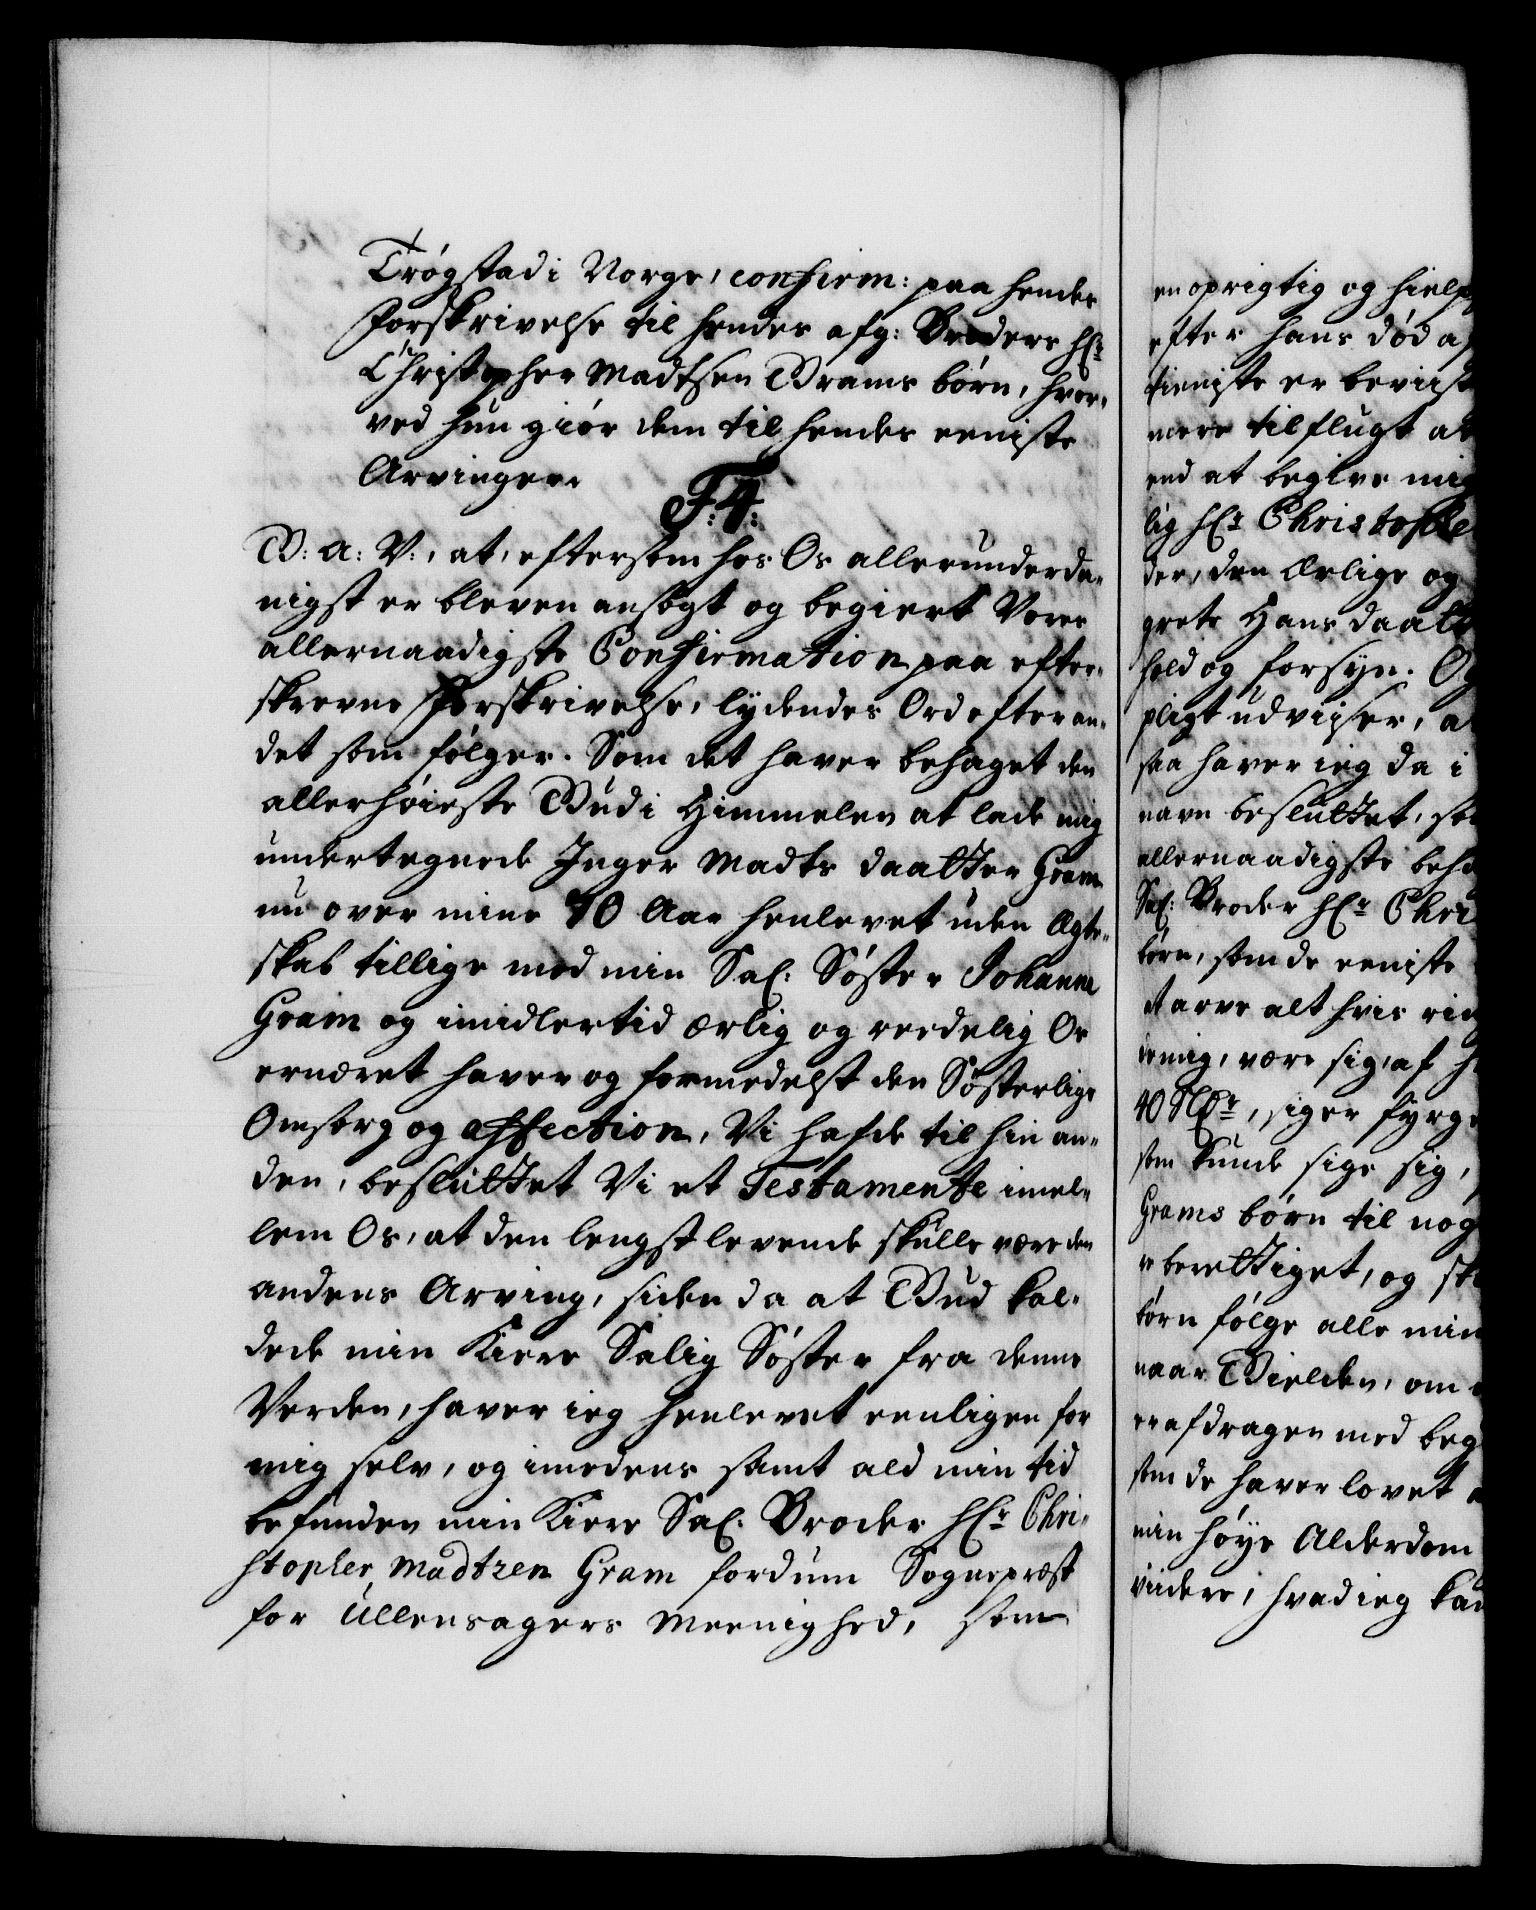 Trøgstad i Norge, confirm: paa hendes
Forskrivelse til hendes afg: Broders Hr
Christopher Madtsen Grams børn, hvor-
ved hun giør dem til hendes eeniste
Arvinger.
F: 4:
G: A: V:, at, eftersom hos Os allerunderda-
nigst er bleven ansøgt og begiert Vores
allernaadigste Confirmation paa efter-
skrevne Forskrivelse, lydendes Ord efter an-
det som følger. Som det haver behaget den
allerhøieste Gud i Himmelen at lade mig
undertegnede Inger Madts daatter Gram
nu over mine 70 Aar henlevet uden Ægte-
skab tillige med min Sal: Søster Johanne
Gram og imidlertid ærlig og reedelig Os
ernæret haver og formedelst den Søsterlige
Omsorg og affection, Vi hafde til hin an-
den, besluttet Vi et Testamente imel-
lem Os, at den lengst levende skulle være den
andens Arving, siden da at Gud kal-
dede min Kiere Salig Søster fra denne
Verden, haver ieg henlevet eenligen for
mig selv, og imedens samt ald min tid
befunden min Kiere Sal: Broder Hr Chri-
stopher Madtzen Gram fordum Sognepræst
for Ullensagers Meenighed, som
en oprigtig og hielp
efter hans død a
tieniste er beviist
mere tilflugt at
end at begive mig
lig Hr Christophe
der, den Ærlige og
grete Hans daatt
hold og forsyn. Og
pligt udviser, a
saa haver ieg da i
navn besluttet, so
allernaadigste beha
Sal: Broder Hr Chri
børn, som de eeniste
at arve alt hvis rin
mig, være sig, af
40 Rdr, siger fyrge
som kunde sige sig,
Grams børn til nog
berettiget, og sk
børn følge alle min
naar Gielden, om
afdragen med beg
som de haver lovet
min høye Alderdom
viidere, hvad ieg kan